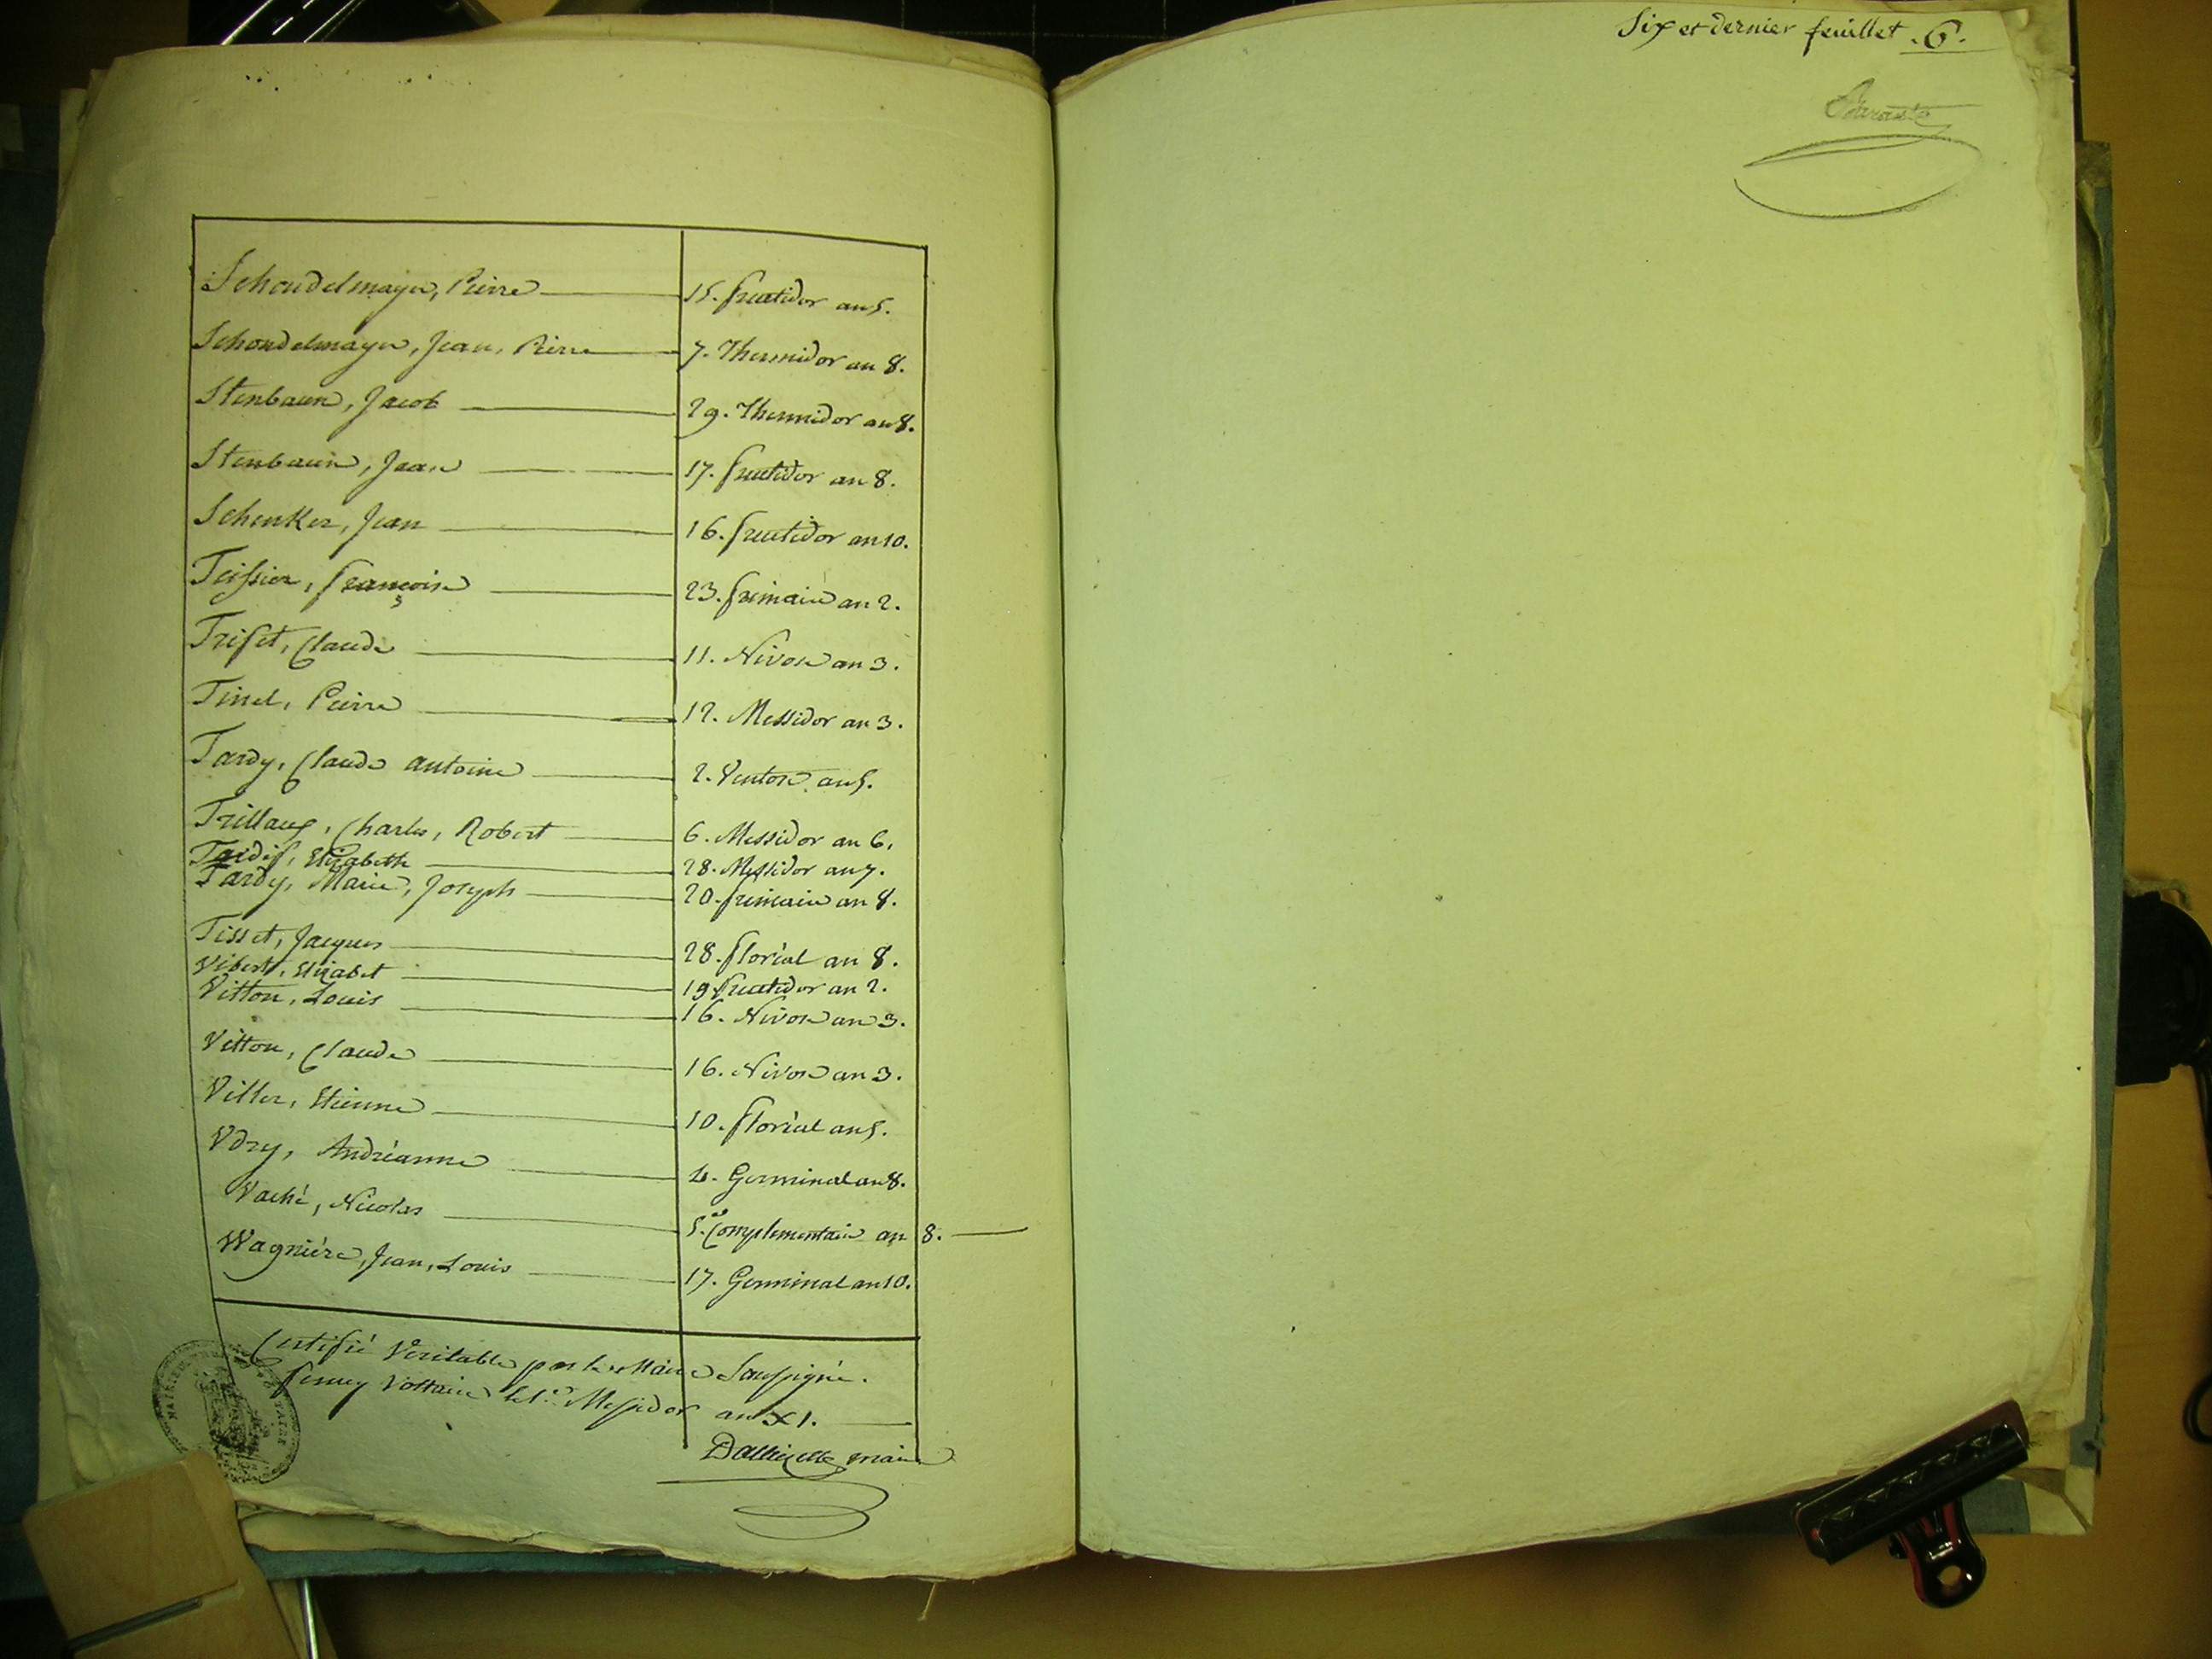 Six et dernier feuillet .6.
Schoudelmayer, Pierre 15. fructidor an 5.
Schoudelmayer, Jean, Pierre 7. Thermidor an 8.
Stenbaun, Jacob 29. Thermidor an 8.
Stenbaun, Jean 17. fructidor an 8.
Schenker, Jean 16. fructidor an 10.
Teissier, françoise 23. frimaire an 2.
Triset, Claude 11. Nivose an 3.
Tinel, Pierre 12. Messidor an 3.
Tardy, Claude antoine 2. Ventose an 5.
Trillaux, Charles, Robert 6. Messidor an 6.
Tardif, Elizabeth 28. Messidor an 7.
Tardy, Marie, Joseph 20. frimaire an 8.
Tisset, Jacques 28. floréal an 8.
Vibert, Elizabet 19 fructidor an 2.
Vitton, Louis 16. Nivose an 3.
Vitton, Claude 16. Nivose an 3.
Viller, Etienne 10. floréal an 5.
Vdry, Andréanne 4. Germinal an 8.
Vaché, Nicolas 5.e Complementaire an 8.
Wagniére, Jean, Louis 17. Germinal an 10.
Certifié Véritable par le Maire Soussigné.
ferney Voltaire le 1.er Messidor an XI.
maire